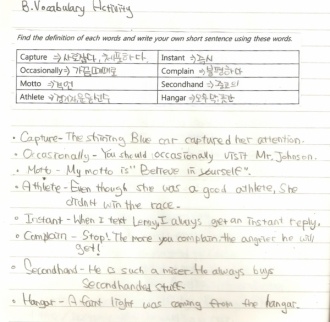 B. Vocabulary Activity
Find the definition of each words and write your own short sentence using these words.
Capture ⇒ 사로잡다, 체포하다.
Instant ⇒ 즉시
Occasionally ⇒ 가끔
Complain ⇒ 불평하다
Motto ⇒
Secondhand ⇒
Athlete ⇒
Hangar ⇒
• Capture - The shining Blue car captured her attention.
• Occasionally - You should occasionally visit Mr. Johnson.
• Motto - My motto is "Believe in yourself".
• Athlete - Even though she was a good athlete, She
didn't win the race.
• Instant - When I text Leroy, I always get an instant reply.
• Complain - Stop! The more you complain the angrier he will
get!
• Secondhand - He is such a miser. He always buys
Secondhanded stuff.
• Hangar - A faint light was coming from the hangar.